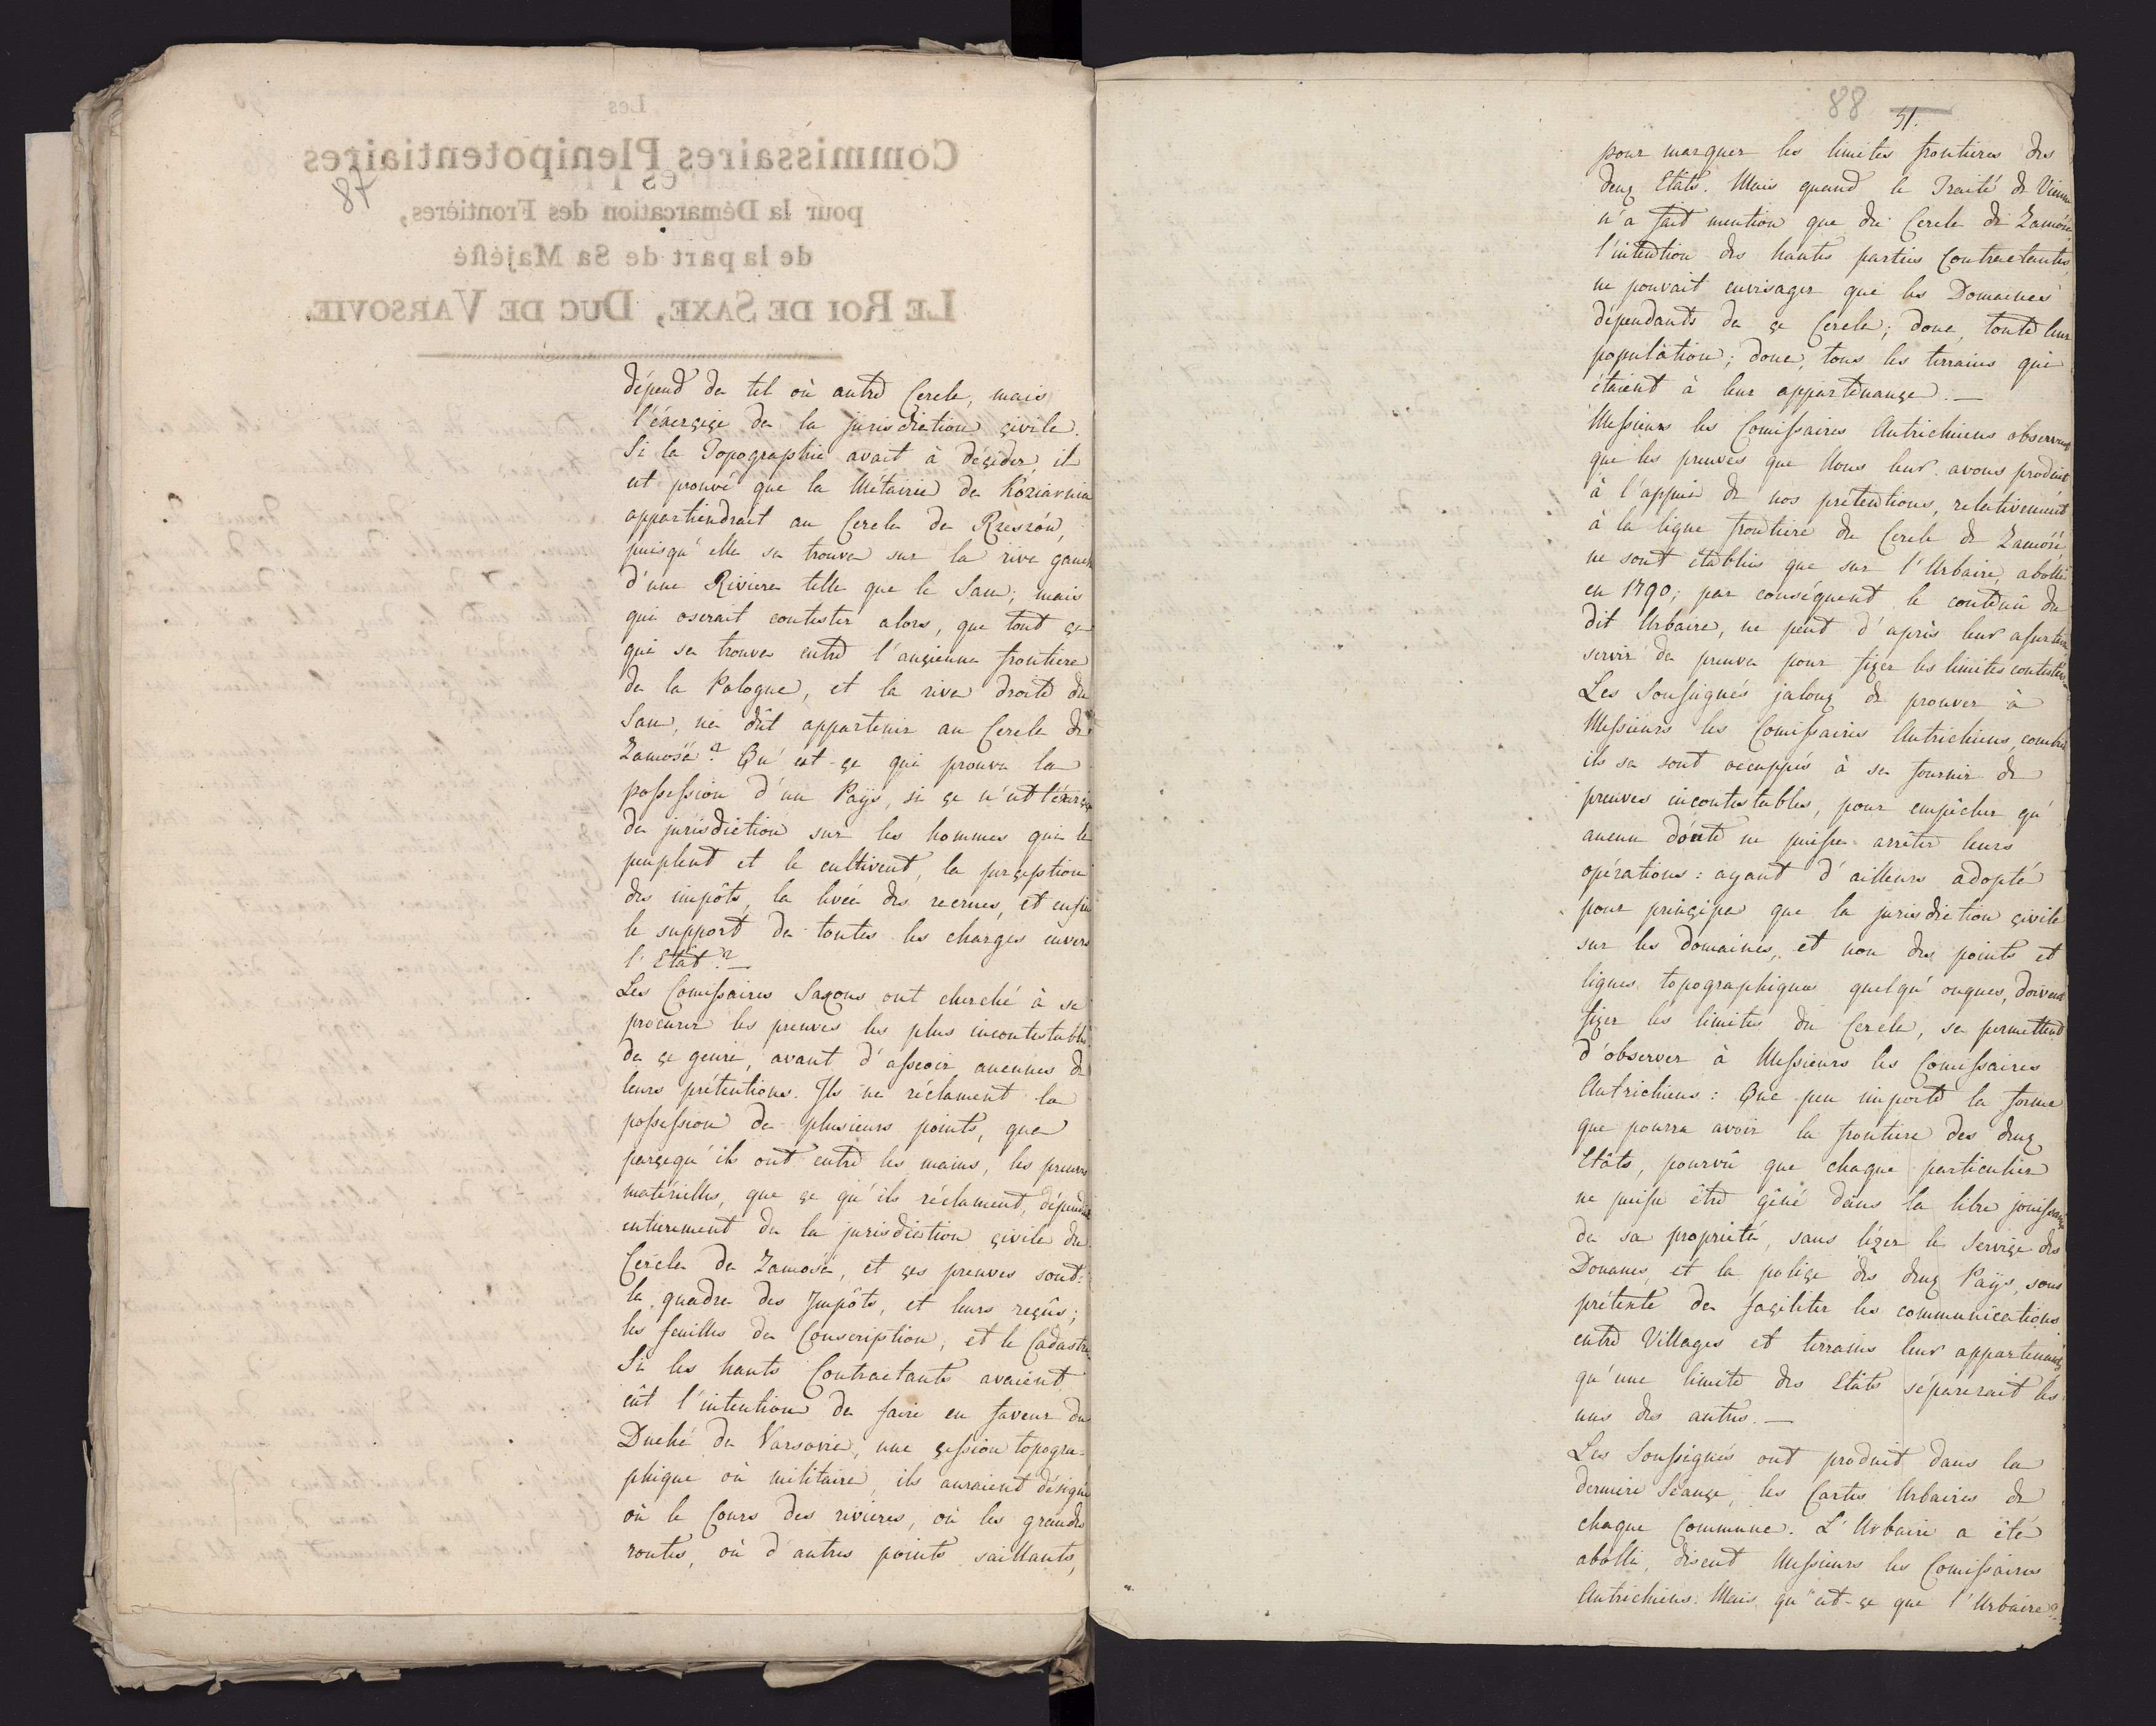 Les
Commissaires Plenipotentiaires
87
pour la Démarcation des Frontiéres,
de la part de Sa Majéſté
LE ROI DE SAXE, DUC DE VARSOVIE.
dépend de tel où autre Cercle, mais
l'éxerçiçe de la jurisdiction çivile.
Si la Topographie avait à déçider, il
est prouvé que la Métairie de Koziarnia
appartiendrait au Cercle de Rzeszów,
puisqu'elle se trouve sur la rive gauche
d'une Riviere telle que le San; mais
qui oserait contester alors, que tout çe
qui se trouve entre l'ançienne frontiere
de la Pologne, et la rive droite du
San, ne dût appartenir au Cercle de
Zamość? Qu'est-çe qui prouve la
poſseſsion d'un Païs, si çe n'est l'éxerçiçe
de jurisdiction sur les hommes qui le
peuplent et le cultivent, la perçeption
des impôts, la livée des recrues, et enfin
le support de toutes les charges envers
l'Etât?—
Les Comiſsaires Saxons ont cherché à se
procurer les preuves les plus incontestables
de çe genre, avant d'aſseoir aucunes de
leurs prétentions. Ils ne réclament la
poſseſsion de plusieurs points, que
parçequ'ils ont entre les mains, les preuves
matérielles, que çe qu'ils réclament, dépendit
entierement de la jurisdiction çivile du
Cercle de Zamość, et çes preuves sont:
le quadre des Impôts, et leurs reçûs;
les feuilles de Conscription, et le Cadastre
Si les hauts Contractants avaient
eût l'intention de faire en faveur du
Duché de Varsovie, une çeſsion topogra-
phique où militaire, ils auraient désigné
où le Cours des rivieres, où les grandes
routes, où d'autres points saillants,
88
51.
pour marquer les limites frontieres des
deux Etâts. Mais quand le Traité de Vienne
n'a fait mention que du Cercle de Zamość,
l'intention des hautes parties Contractantes,
ne pouvait envisager que les Domaines
dépendants de çe Cercle; donc, toute leur
population; donc, tous les terrains qui
étaient à leur appartenançe.—
Meſsieurs les Comiſsaires Autrichiens observent
que les preuves que Nous leur avons produit
à l'appui de nos prétentions, relativement
à la ligne frontiere du Cercle de Zamość,
ne sont établies que sur l'Urbaire, abolli
en 1790; par conséquent le contenû du
dit Urbaire, ne peut d'après leur aſsertion
servir de preuve pour fixer les limites contestées.
Les Souſsignés jaloux de prouver à
Meſsieurs les Comiſsaires Autrichiens, combien
ils se sont occuppés à se fournir de
preuves incontestables, pour empêcher qu'
aucun doute ne puiſse arrêter leurs
opérations: ayant d'ailleurs adopté
pour prinçipe que la jurisdiction çivile
sur les domaines, et non des points et
lignes topographiques quelqu'onques, doivent
fixer les limites du Cercle, se permettent
d'observer à Meſsieurs les Comiſsaires
Autrichiens: Que peu importe la forme
que pourra avoir la frontiere des deux
Etâts, pourvû que chaque particulier
ne puiſse être gêné dans la libre jouiſsançe
de sa propriété, sans lézer le Serviçe des
Douanes, et la poliçe des deux Païs, sous
prétexte de façiliter les communications
entre Villages et terrains leur appartenants
qu'une limite des Etâts séparerait les
uns des autres.—
Les Souſsignés ont produit dans la
derniere Séançe, les Cartes Urbaires de
chaque Commune. L'Urbaire a été
abolli, disent Meſsieurs les Comiſsaires
Autrichiens. Mais qu'est-çe que l'Urbaire?